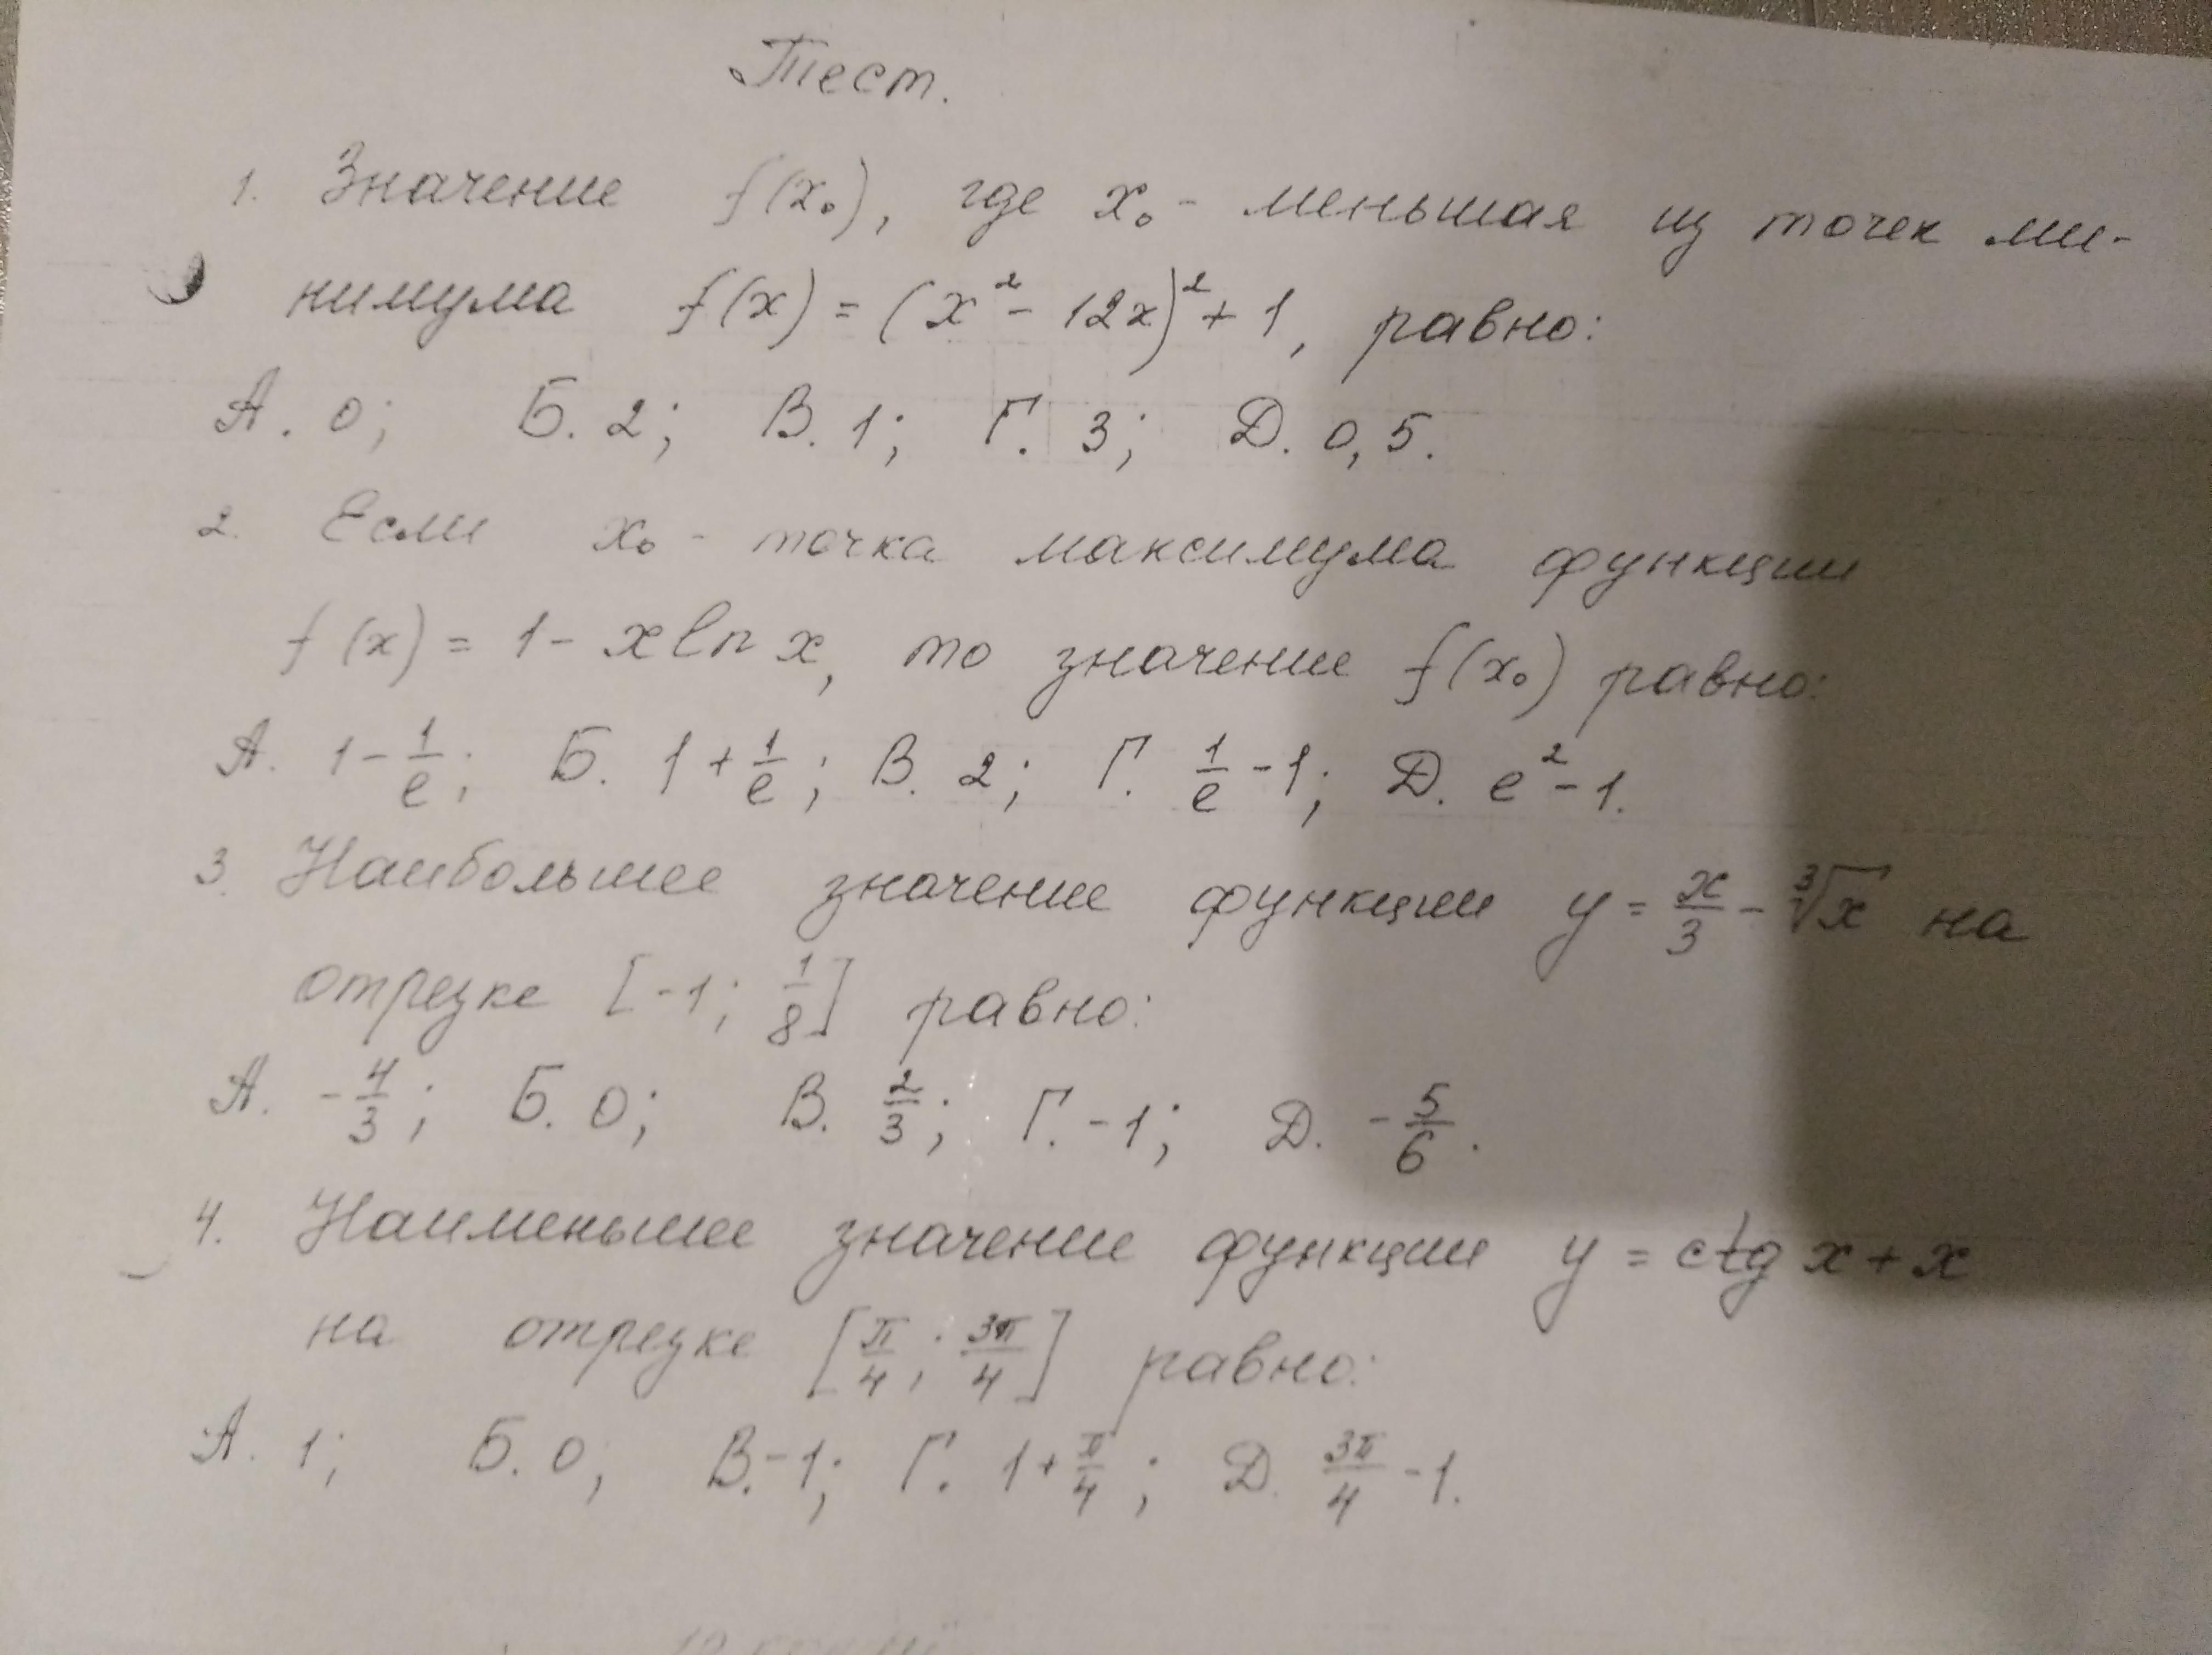 Тест.
1. Значение f(x₀), где x₀ - меньшая из точек ми-
нимума f(x) = (x² - 12x)² + 1, равно:
А. 0; Б. 2; В. 1; Г. 3; Д. 0,5.
2. Если x₀ - точка максимума функции
f(x) = 1 - x ln x, то значение f(x₀) равно:
А. 1 - 1/e; Б. 1 + 1/e; В. 2; Г. 1/e - 1; Д. e² - 1.
3. Наибольшее значение функции y = x/3 - ∛x на
отрезке [-1; 1/8] равно:
А. -4/3; Б. 0; В. 2/3; Г. -1; Д. -5/6.
4. Наименьшее значение функции y = ctg x + x
на отрезке [π/4; 3π/4] равно:
А. 1; Б. 0; В. -1; Г. 1 + π/4; Д. 3π/4 - 1.